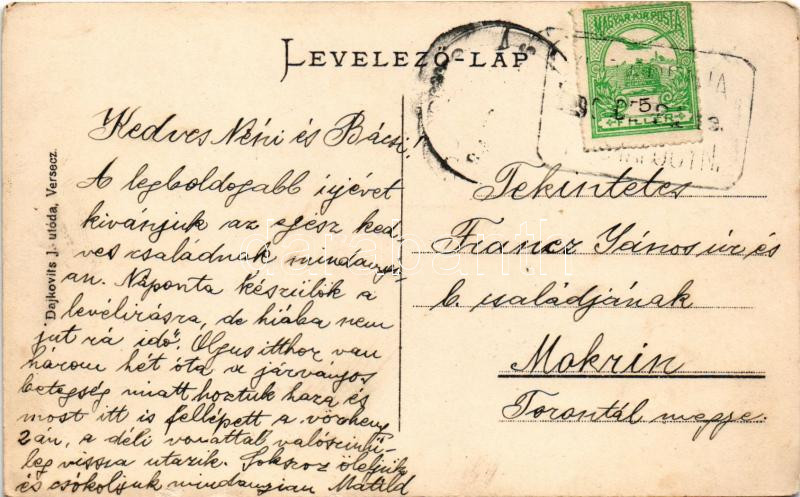 LEVELEZŐ-LAP
MAGYAR·KIR·POSTA
5
FILLÉR
Dajkovits J. utóda, Versecz.
Kedves Néni és Bácsi!
A legboldogabb újévet
kivánjuk az egész ked-
ves családnak mindanyi-
an. Naponta készülök a
levélirásra, de hiába nem
jut rá idő. Olgus itthon van
három hét óta a járványos
betegség miatt hoztuk haza és
most itt is fellépett a vörheny
án, a déli vonattal valószinű-
leg vissza utazik. Sokszor öleljük
és csókoljuk mindanyian Matild
Tekintetes
Francz János úr és
b. családjának
Mokrin
Torontál megye.